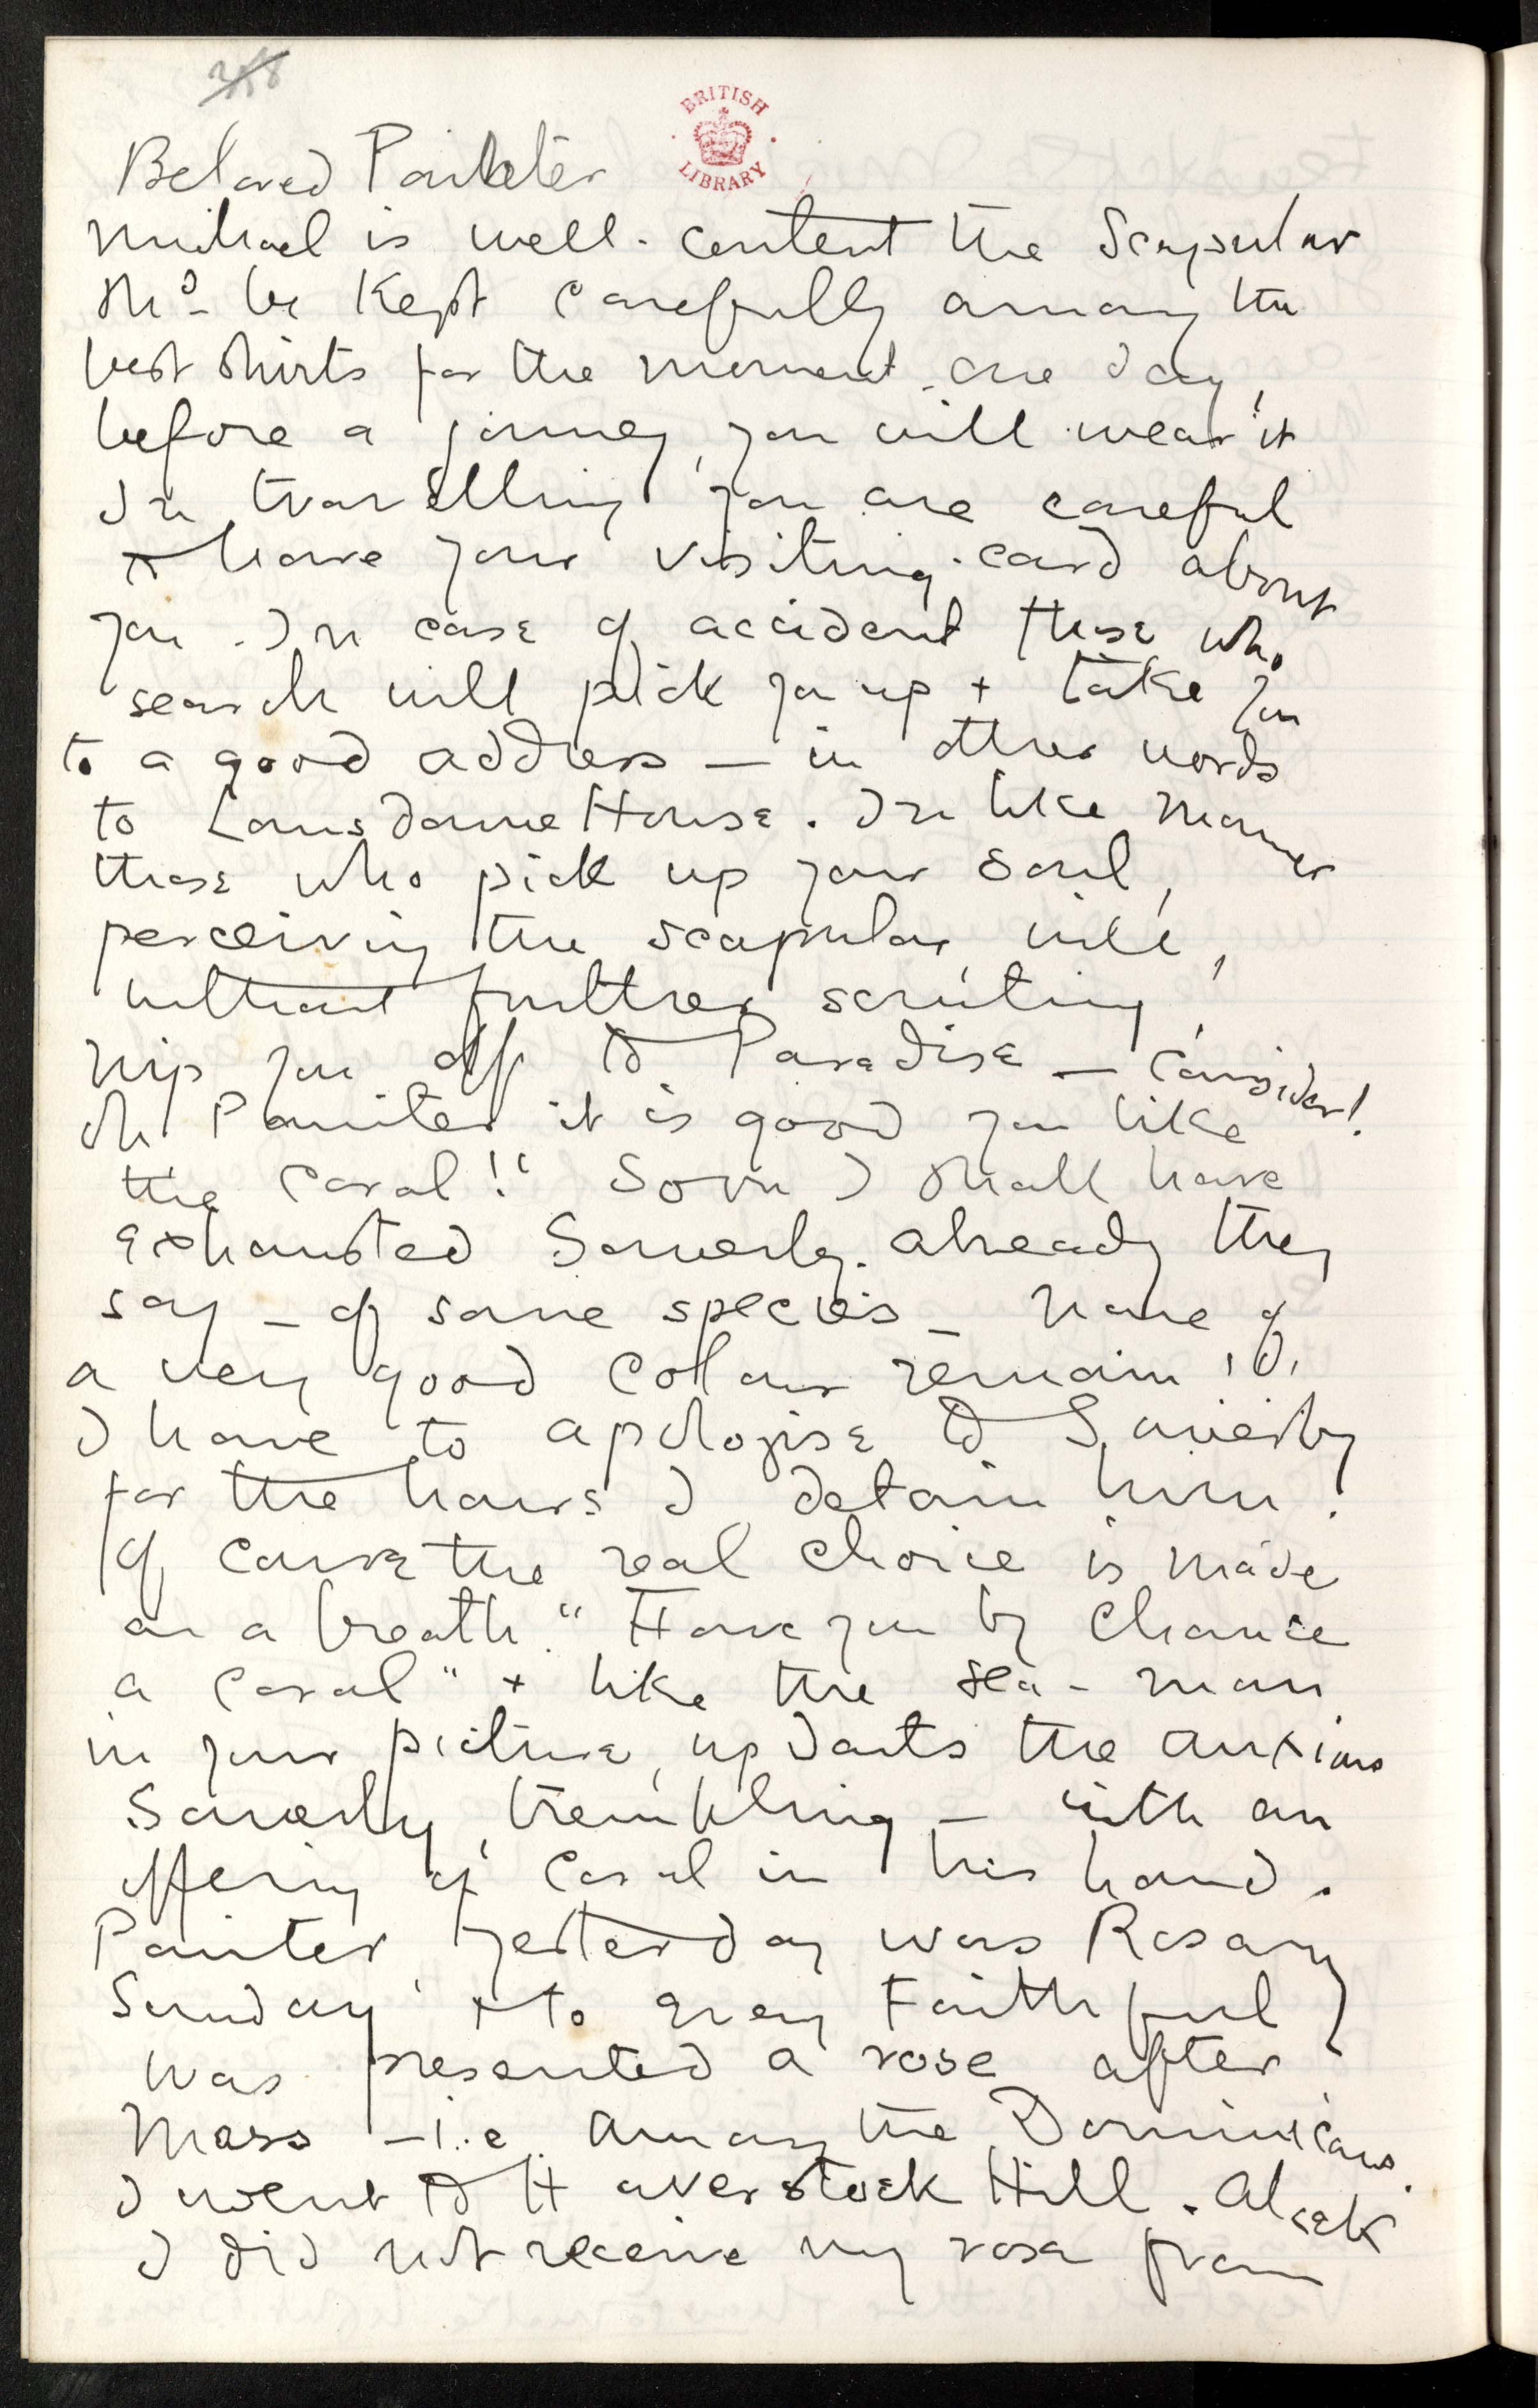 358
BRITISH
LIBRARY
Beloved Painter
Michael is well-content the Scapular
shd be kept carefully among the
best shirts for the moment. One day,
before a journey, you will wear it
In travelling you are careful
to have your visiting-card about
you. In case of accident those who
search will pick you up + take you
to a good address — in other words
to Lansdowne House. In like manner
those who pick up your soul,
perceiving the scapular, will,
without further scrutiny,
nip you off to Paradise — Consider!
Oh Painter it is good you like
the coral!! Soon I shall have
exhausted Sowerby. Already they
say — of some species — none of
a very good colour remain!
I have to apologise to Sowerby
for the hours I detain him!
Of course the real choice is made
on a breath. "Have you by chance
a coral" + like the sea-man
in your picture, up darts the anxious
Sowerby, trembling — with an
offering of coral in his hand.
Painter, yesterday was Rosary
Sunday, + to every Faithful
was presented a rose after
Mass — i.e. among the Dominicans.
I went to Haverstock Hill. Alack
I did not receive my rose from